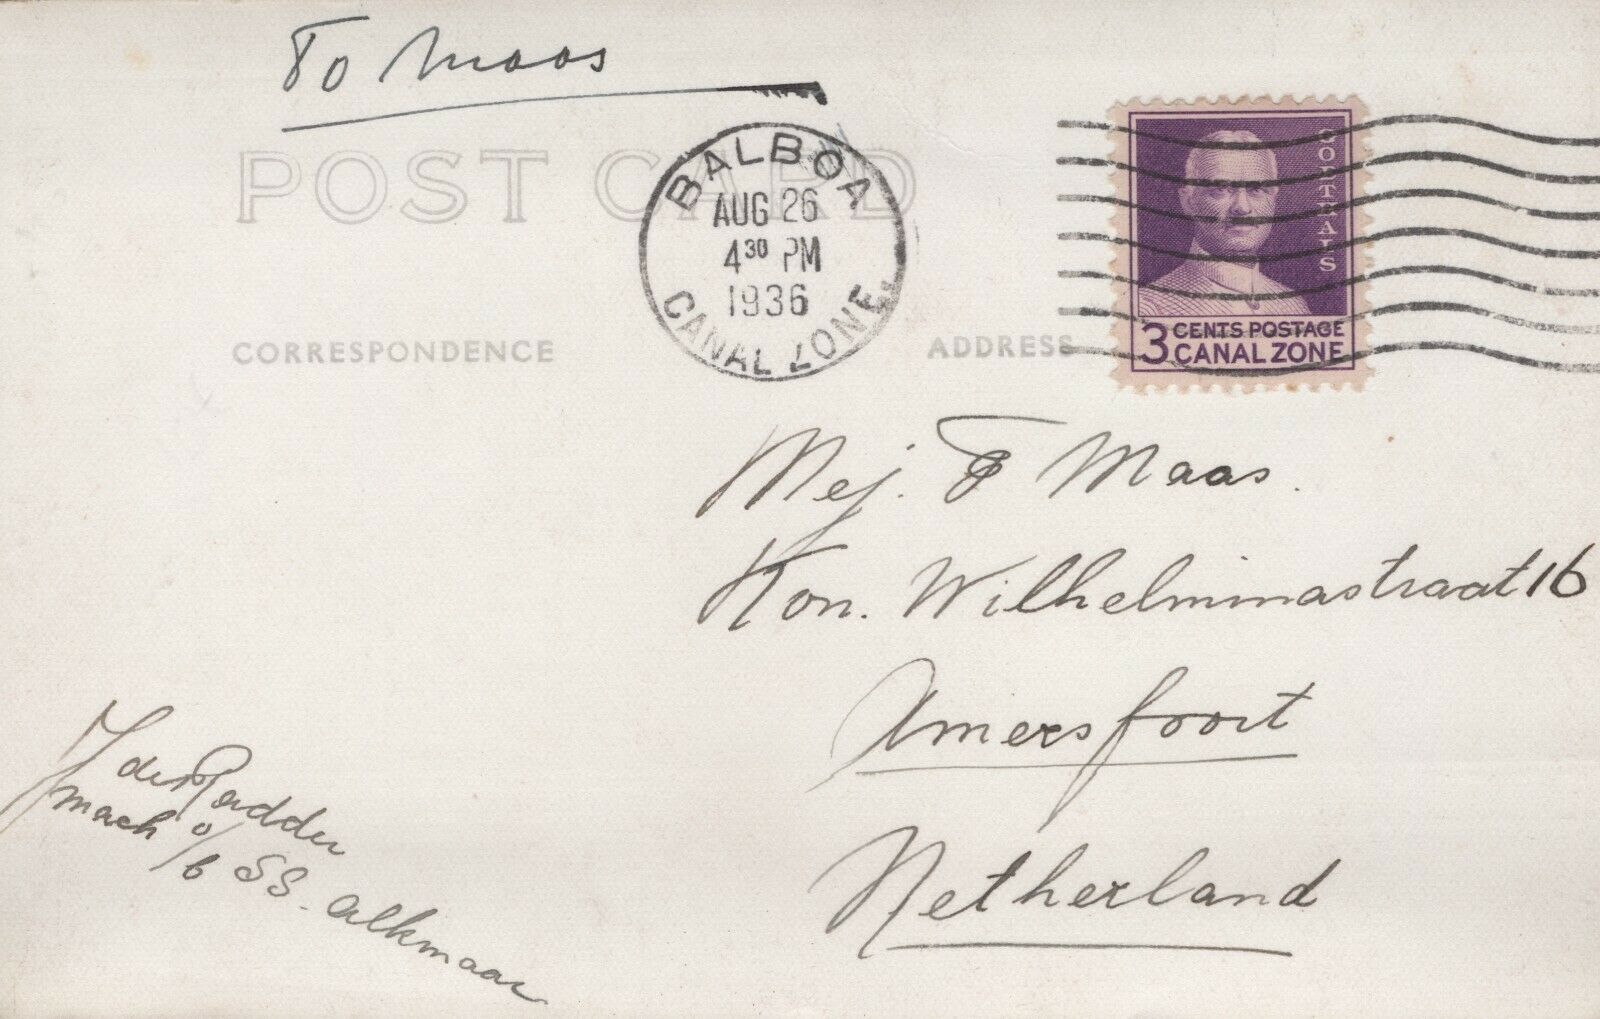 To Maas
POST CARD
BALBOA
AUG 26
4 30 PM
1936
CANAL ZONE
GOETHALS
3 CENTS POSTAGE
CANAL ZONE
CORRESPONDENCE
ADDRESS
Mej. F Maas.
Kon. Wilhelminastraat 16
Amersfoort
Netherland
J de Radder
Mach o/b SS. Alkmaar